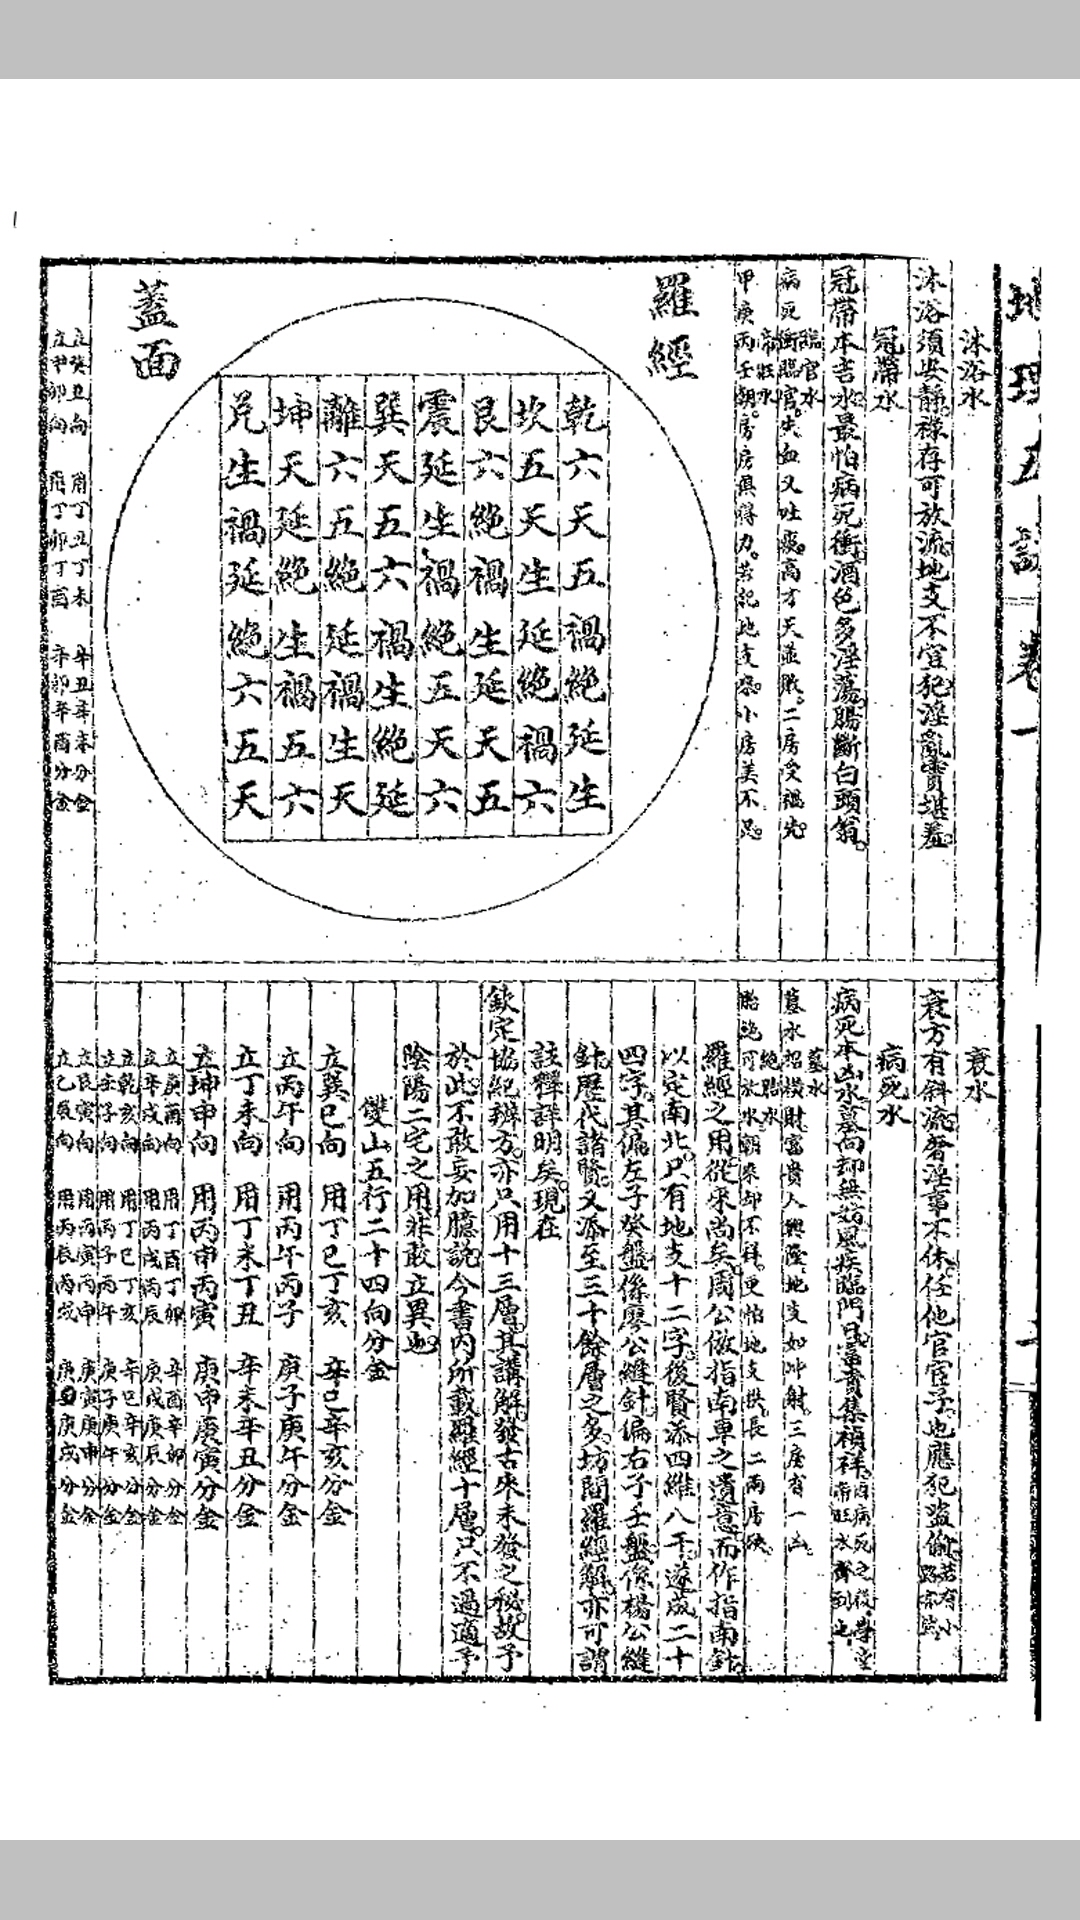 地理五訣 卷一
沐浴水
沐浴須安靜。祿存可放流。地支不宜犯。淫亂實堪羞。
冠帶水
冠帶本吉水。最怕病死衝。酒色多淫蕩。腸斷白頭翁。
臨官水
病死衝臨官。失血又吐痰。高才天並敗。二房受禍先。
帝旺水
甲庚丙壬朝。房房俱得力。若記地支來。小房美不足。
羅經
蓋面
乾六天五禍絶延生
坎五天生延絶禍六
艮六絶禍生延天五
震延生禍絶五天六
巽天五六禍生絶延
離六五絶延禍生天
坤天延絶生禍五六
兌生禍延絶六五天
立癸丑向 用丁丑丁未 辛丑辛未分金
立甲卯向 用丁卯丁酉 辛卯辛酉分金
衰水
衰方有斜流。奢淫事不休。任他官宦子。也應犯盜偷。
病死水
病死本凶水。墓向却無妨。風疾臨門日。富貴集禎祥。
墓水
墓水招橫財。富貴人興隆。地支如冲射。三房有一凶。
絶胎水
胎絶可放水。朝來却不祥。更怕地支拱。長二兩房殃。
羅經之用。從來尚矣。周公倣指南車之遺意。而作指南針。
以定南北。只有地支十二字。後賢添四維八干。遂成二十
四字。其偏左子癸盤。係廖公縫針。偏右子壬盤。係楊公縫
針。歷代諸賢。又添至三十餘層之多。坊間羅經解。亦可謂
註釋詳明矣。現在
欽定協紀辨方。亦只用十三層。其講解。發古來未發之秘。故予
於此。不敢妄加臆說。今書內所載羅經十層。只不過適予
陰陽二宅之用。非敢立異也。
雙山五行二十四向分金
立巽巳向 用丁巳丁亥 辛巳辛亥分金
立丙午向 用丙午丙子 庚子庚午分金
立丁未向 用丁未丁丑 辛未辛丑分金
立坤申向 用丙申丙寅 庚申庚寅分金
立庚酉向 用丁酉丁卯 辛酉辛卯分金
立辛戌向 用丙戌丙辰 庚戌庚辰分金
立乾亥向 用丁巳丁亥 辛巳辛亥分金
立壬子向 用丙子丙午 庚子庚午分金
立艮寅向 用丙寅丙申 庚寅庚申分金
立乙辰向 用丙辰丙戌 庚戌分金